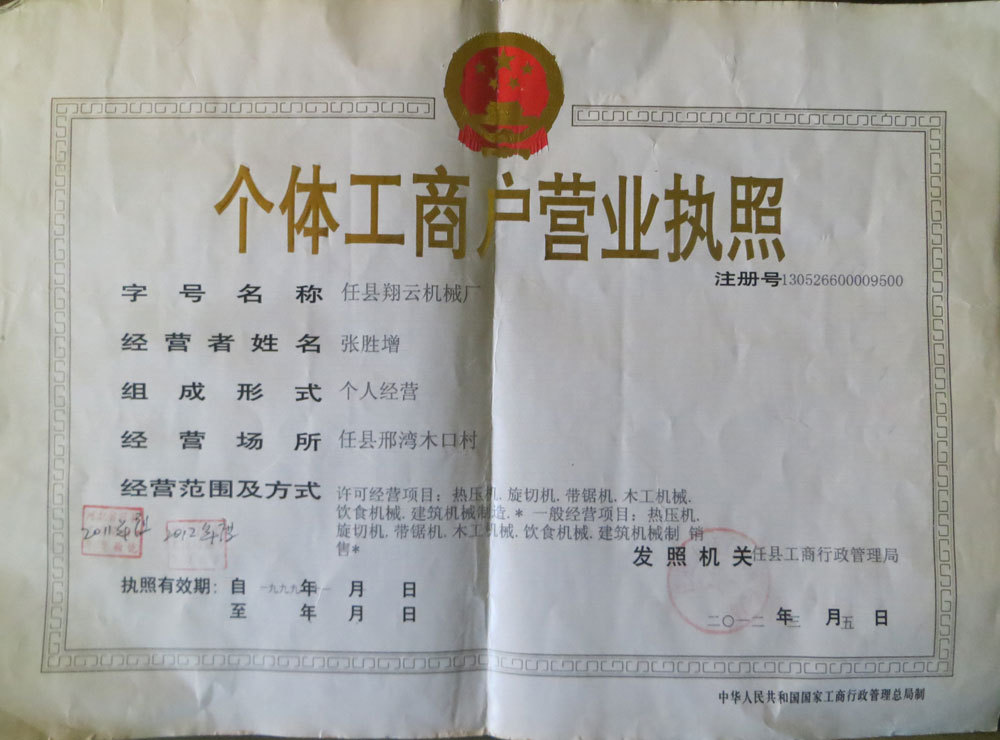 个体工商户营业执照
注册号130526600009500
字号名称 任县翔云机械厂
经营者姓名 张胜增
组成形式 个人经营
经营场所 任县邢湾木口村
经营范围及方式 许可经营项目：热压机.旋切机.带锯机.木工机械.
饮食机械.建筑机械制造.* 一般经营项目：热压机.
旋切机.带锯机.木工机械.饮食机械.建筑机械制 销
售*
2011年 2012年
发照机关 任县工商行政管理局
执照有效期：自 一九九九年一 月 日
至 年 月 日
二〇一二 年 三 月 五 日
中华人民共和国国家工商行政管理总局制